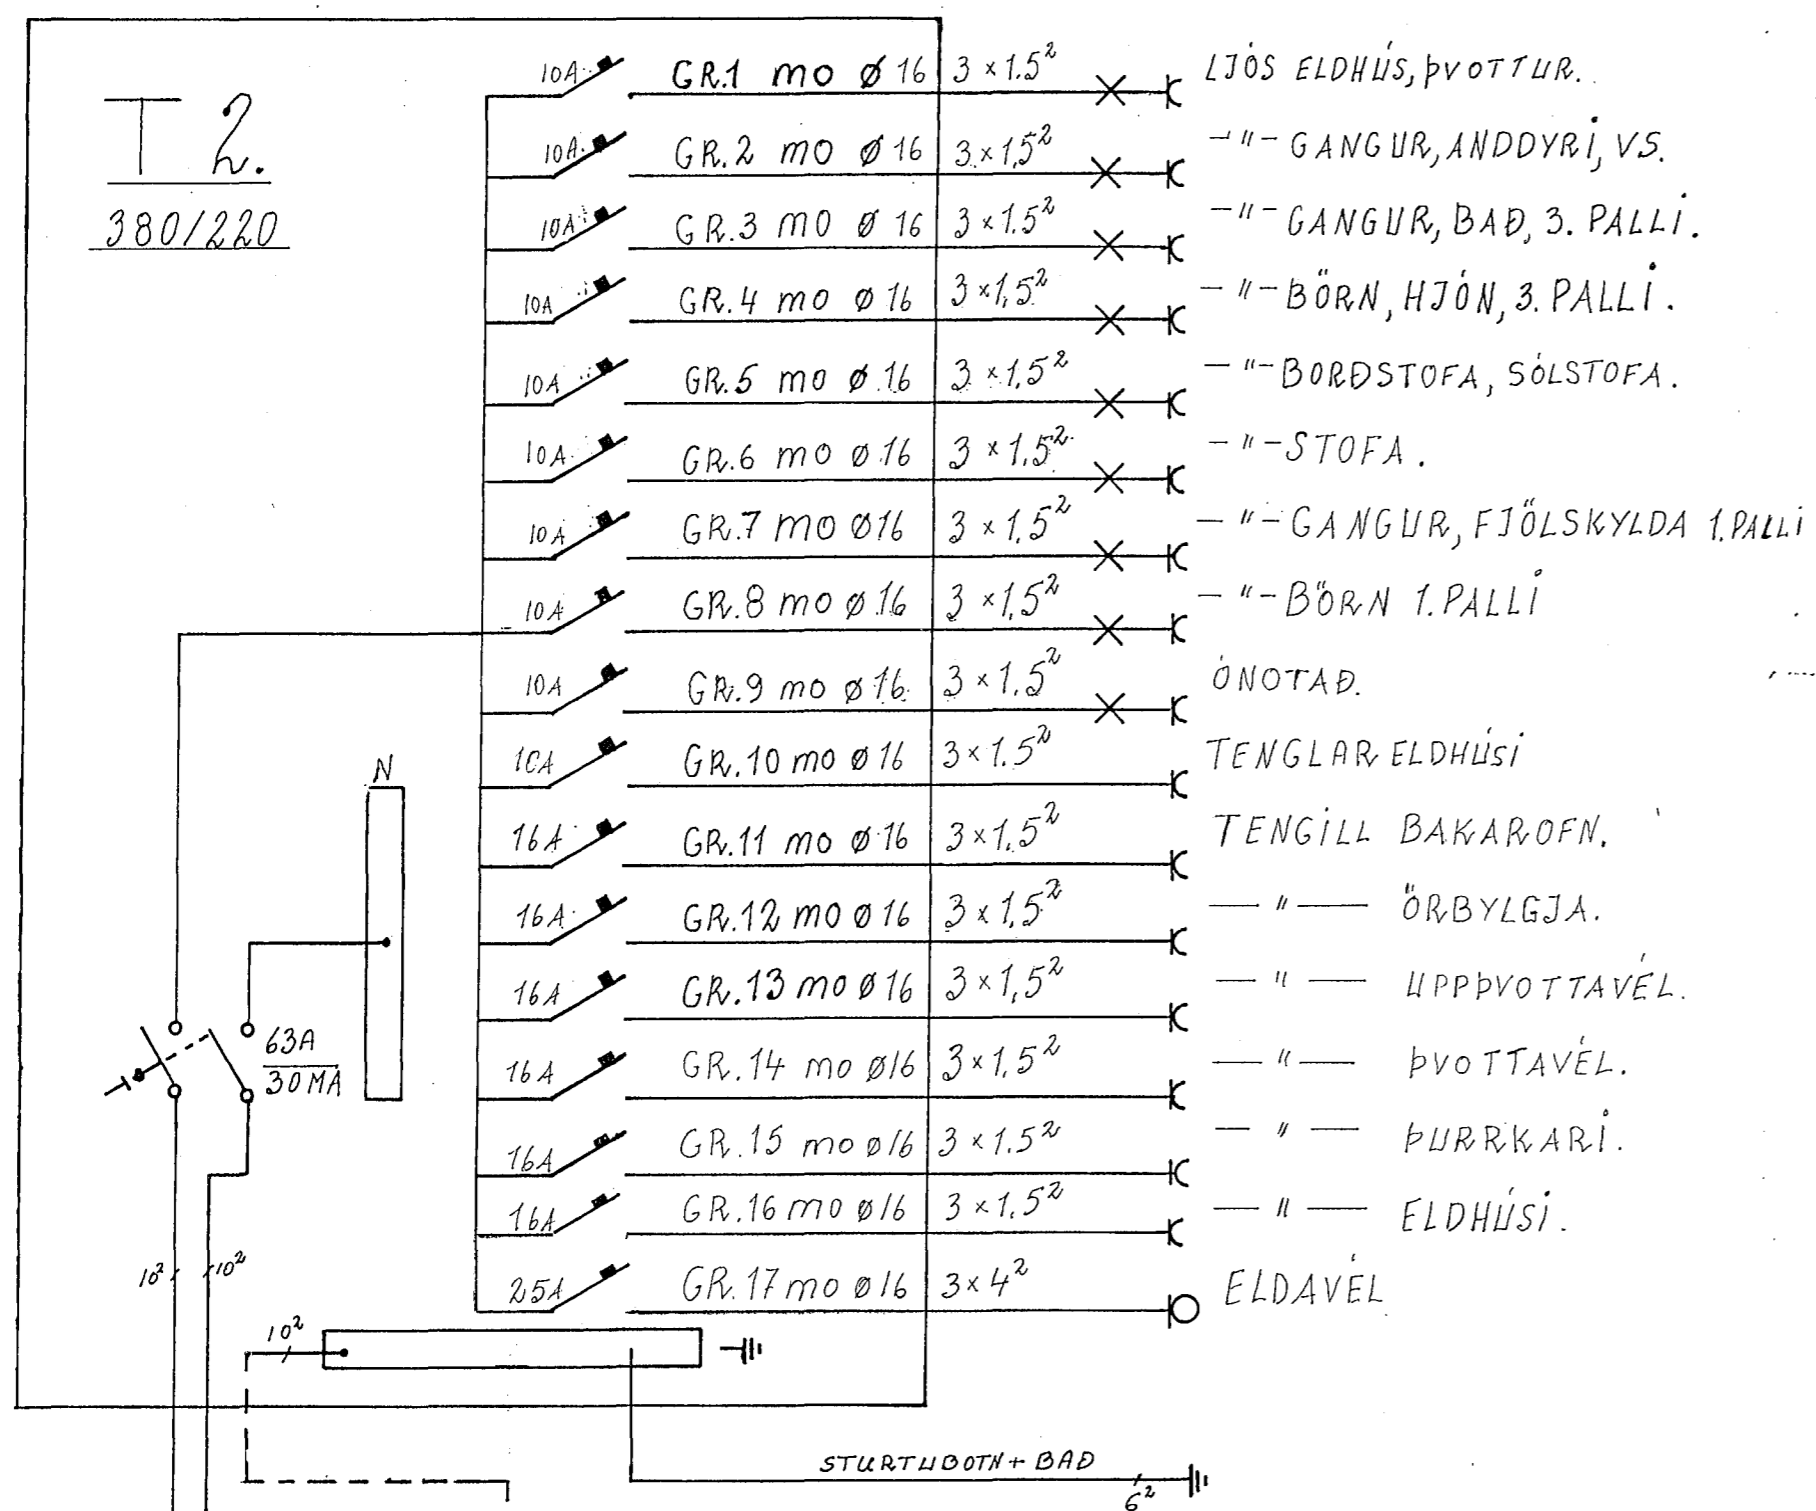 T 2.
380/220
10A GR.1 mo ø 16 3 × 1.5² LJÓS ELDHÚS, ÞVOTTUR.
10A GR.2 mo ø 16 3 × 1,5² -"- GANGUR, ANDDYRI, VS.
10A GR.3 mo ø 16 3 × 1.5² -"- GANGUR, BAÐ, 3. PALLI.
10A GR.4 mo ø 16 3 × 1,5² -"- BÖRN, HJÓN, 3. PALLI.
10A GR.5 mo ø 16 3 × 1,5² -"- BORÐSTOFA, SÓLSTOFA.
10A GR.6 mo ø 16 3 × 1,5² -"- STOFA.
10A GR.7 mo ø 16 3 × 1,5² -"- GANGUR, FJÖLSKYLDA 1. PALLI
10A GR.8 mo ø 16 3 × 1,5² -"- BÖRN 1. PALLI
10A GR.9 mo ø 16 3 × 1.5² ÓNOTAÐ.
10A GR.10 mo ø 16 3 × 1.5² TENGLAR ELDHÚSI
N
16A GR.11 mo ø 16 3 × 1,5² TENGILL BAKAROFN.
16A GR.12 mo ø 16 3 × 1,5² — " — ÖRBYLGJA.
16A GR.13 mo ø 16 3 × 1,5² — " — UPPÞVOTTAVÉL.
63A
30MA
16A GR.14 mo ø 16 3 × 1,5² — " — ÞVOTTAVÉL.
16A GR.15 mo ø 16 3 × 1.5² — " — ÞURRKARI.
16A GR.16 mo ø 16 3 × 1.5² — " — ELDHÚSI.
10² 10²
25A GR.17 mo ø 16 3 × 4² ELDAVÉL
10²
STURTUBOTN + BAÐ
6²